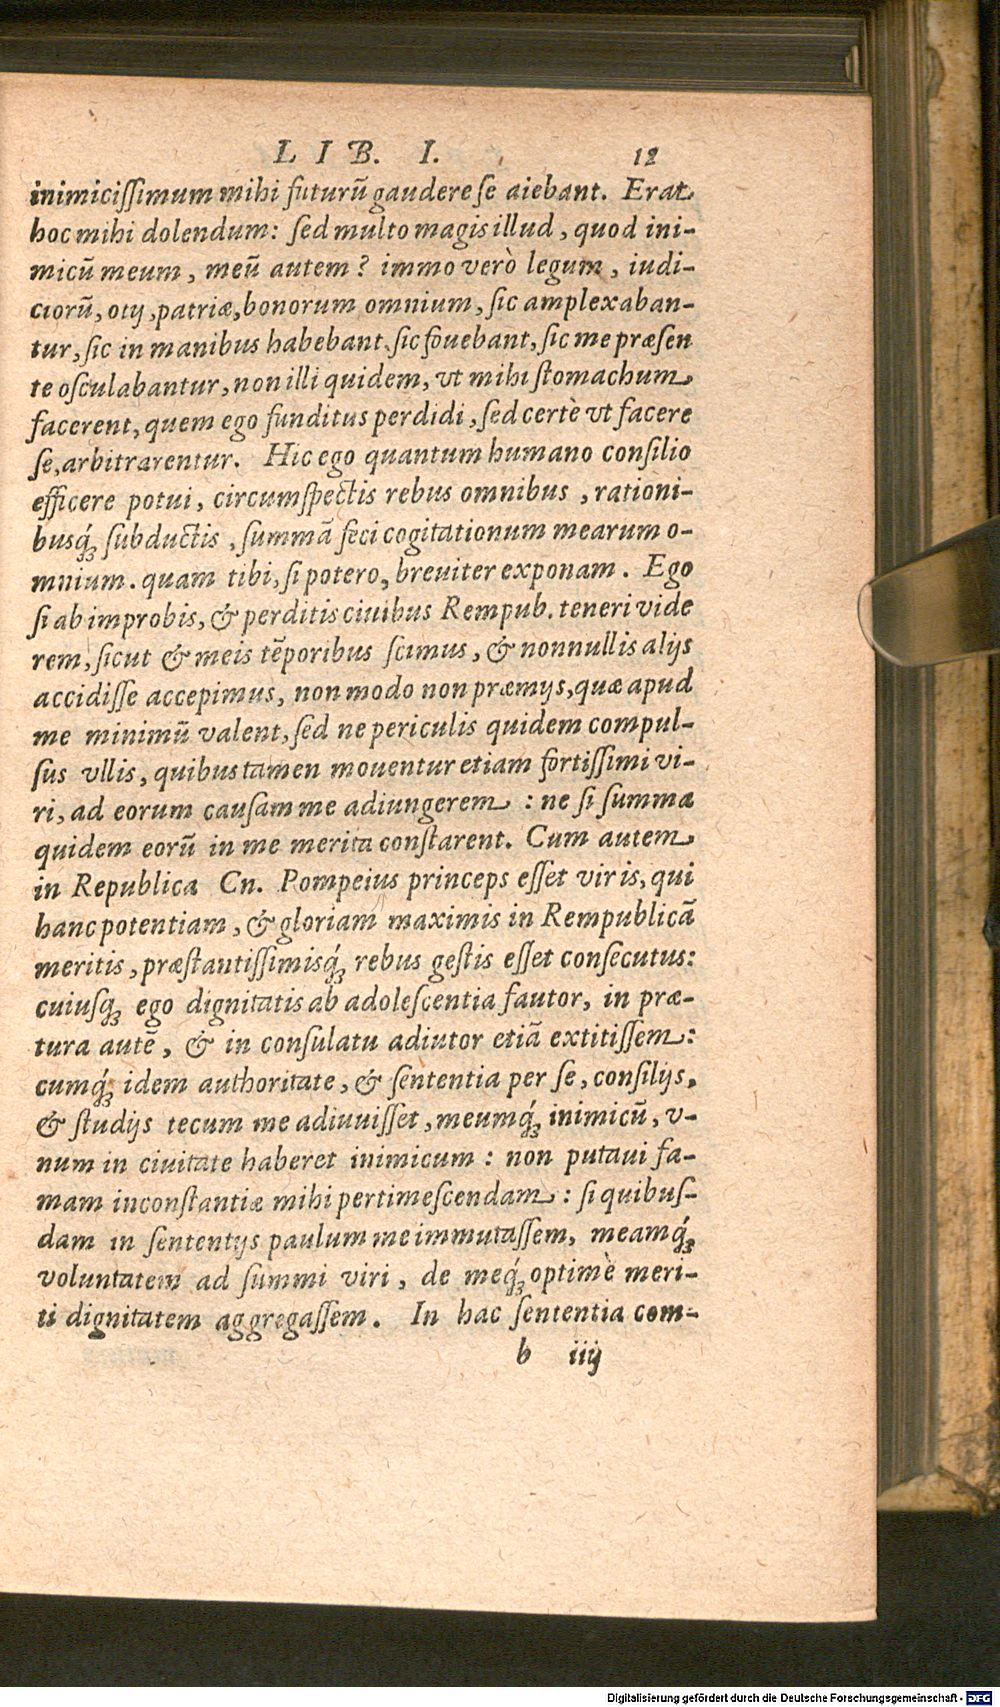 L I B. I. 12
inimiciſſimum mihi futurũ gaudere ſe aiebant. Erat
hoc mihi dolendum: ſed multo magis illud, quod ini-
micũ meum, meũ autem? immo verò legum, iudi-
ciorũ, otij, patriæ, bonorum omnium, ſic amplexaban-
tur, ſic in manibus habebant, ſic fouebant, ſic me præſen
te oſculabantur, non illi quidem, vt mihi ſtomachum
facerent, quem ego funditus perdidi, ſed certè vt facere
ſe, arbitrarentur. Hic ego quantum humano conſilio
efficere potui, circumſpectis rebus omnibus, rationi-
busq́ꝫ ſubductis, ſummã feci cogitationum mearum o-
mnium. quam tibi, ſi potero, breuiter exponam. Ego
ſi ab improbis, & perditis ciuibus Rempub. teneri vide
rem, ſicut & meis tẽporibus ſcimus, & nonnullis alijs
accidiſſe accepimus, non modo non præmijs, quæ apud
me minimũ valent, ſed ne periculis quidem compul-
ſus vllis, quibus tamen mouentur etiam fortiſſimi vi-
ri, ad eorum cauſam me adiungerem: ne ſi ſumma
quidem eorũ in me merita conſtarent. Cum autem
in Republica Cn. Pompeius princeps eſſet vir is, qui
hanc potentiam, & gloriam maximis in Rempublicã
meritis, præſtantiſſimisq́ꝫ rebus geſtis eſſet conſecutus:
cuiuſqꝫ ego dignitatis ab adoleſcentia fautor, in præ-
tura autẽ, & in conſulatu adiutor etiã extitiſſem:
cumq́ꝫ idem authoritate, & ſententia per ſe, conſilijs,
& ſtudijs tecum me adiuuiſſet, meumq́ꝫ inimicũ, v-
num in ciuitate haberet inimicum: non putaui fa-
mam inconſtantiæ mihi pertimeſcendam: ſi quibuſ-
dam in ſententijs paulum me immutaſſem, meamq́ꝫ
voluntatem ad ſummi viri, de meq́ꝫ optimè meri-
ti dignitatem aggregaſſem. In hac ſententia com-
b iiij
Digitalisierung gefördert durch die Deutsche Forschungsgemeinschaft - DFG